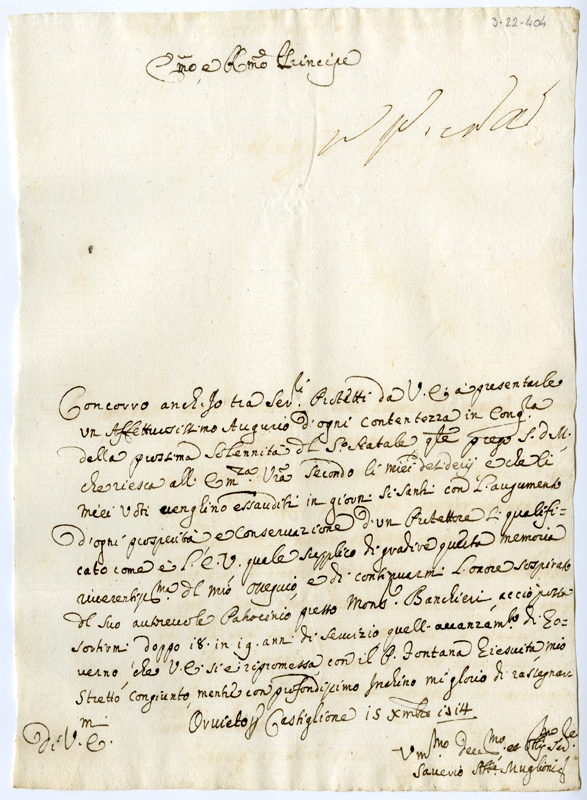 3-22-404
Emo, e Rmo Principe
Concorro anch. Jo tra Serli. Protetti da V. E. a presentarle
un Affettuosissimo Augurio d'ogni contentezza in Congla
della prossima Solennità del S. Natale qle prego S. d. M.
che riesca all. Emza. Vra. secondo li miei desiderij e che li
miei voti venghino essauditi in giorni si santi con l'augumento
d'ogni prosperità e Conservazione d'un Protettore si qualifi-
cato come è l'E. V. quale supplico di gradire questa memoria
riverentissma. del mio ossequio, e di continuarmi l'onore sospirato
del suo autorevole Patrocinio presso Mons. Banchieri, acciò possa
sortirmi doppo 18. in 19. anni di servizio quell. avanzamto. di Go-
verno, che V. E. si è ripromessa con il P. Fontana Giesuita mio
stretto congiunto, mentre con profondissimo Inchino mi glorio di rassegnar
mi
Orvieto Castiglione 15 Xmbre
Di V. E.
Saverio Muglioni